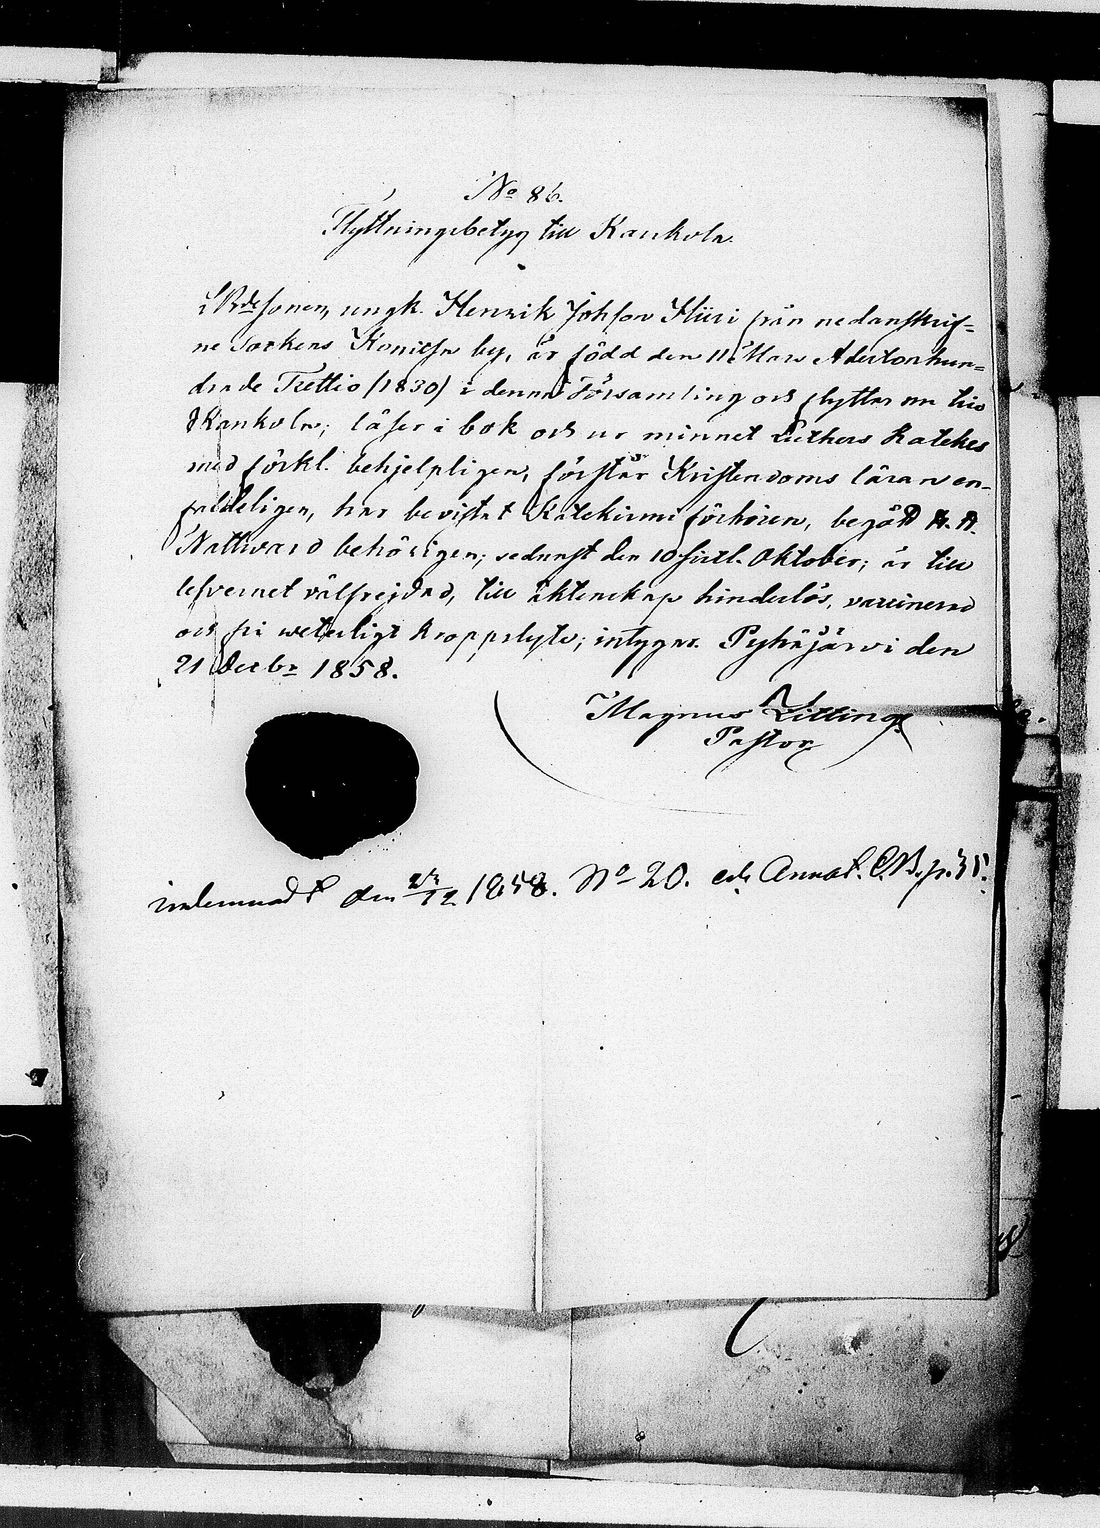 No 86.
Flyttningsbetyg till Kaukola.
Bdesonen, ungk. Henrik Johsson Hiiri från nedanskrif-
ne Sockens Konitsa by, är född den 11 Mars Adertonhun-
drade Trettio (1830) i denna Församling och flyttar nu till
Kaukola; läser i bok och ur minnet Luthers Kateches
med förkl. behjelpligen, förstår Kristendoms läran en-
faldeligen, har bevistat Katekismi förhören, begått H. H.
Nattward behörigen, sednast den 10 sistl. Oktober; är till
lefvernet välfrejdad, till äktenskap hinderlös, vaccinerad
och fri weterligt kroppslyte; intygar. Pyhäjärvi den
21 Decbr 1858.
Magnus Zitting
Pastor
inlemnadt den 23/12 1858. No 20. Annot. C.B. p. 35.